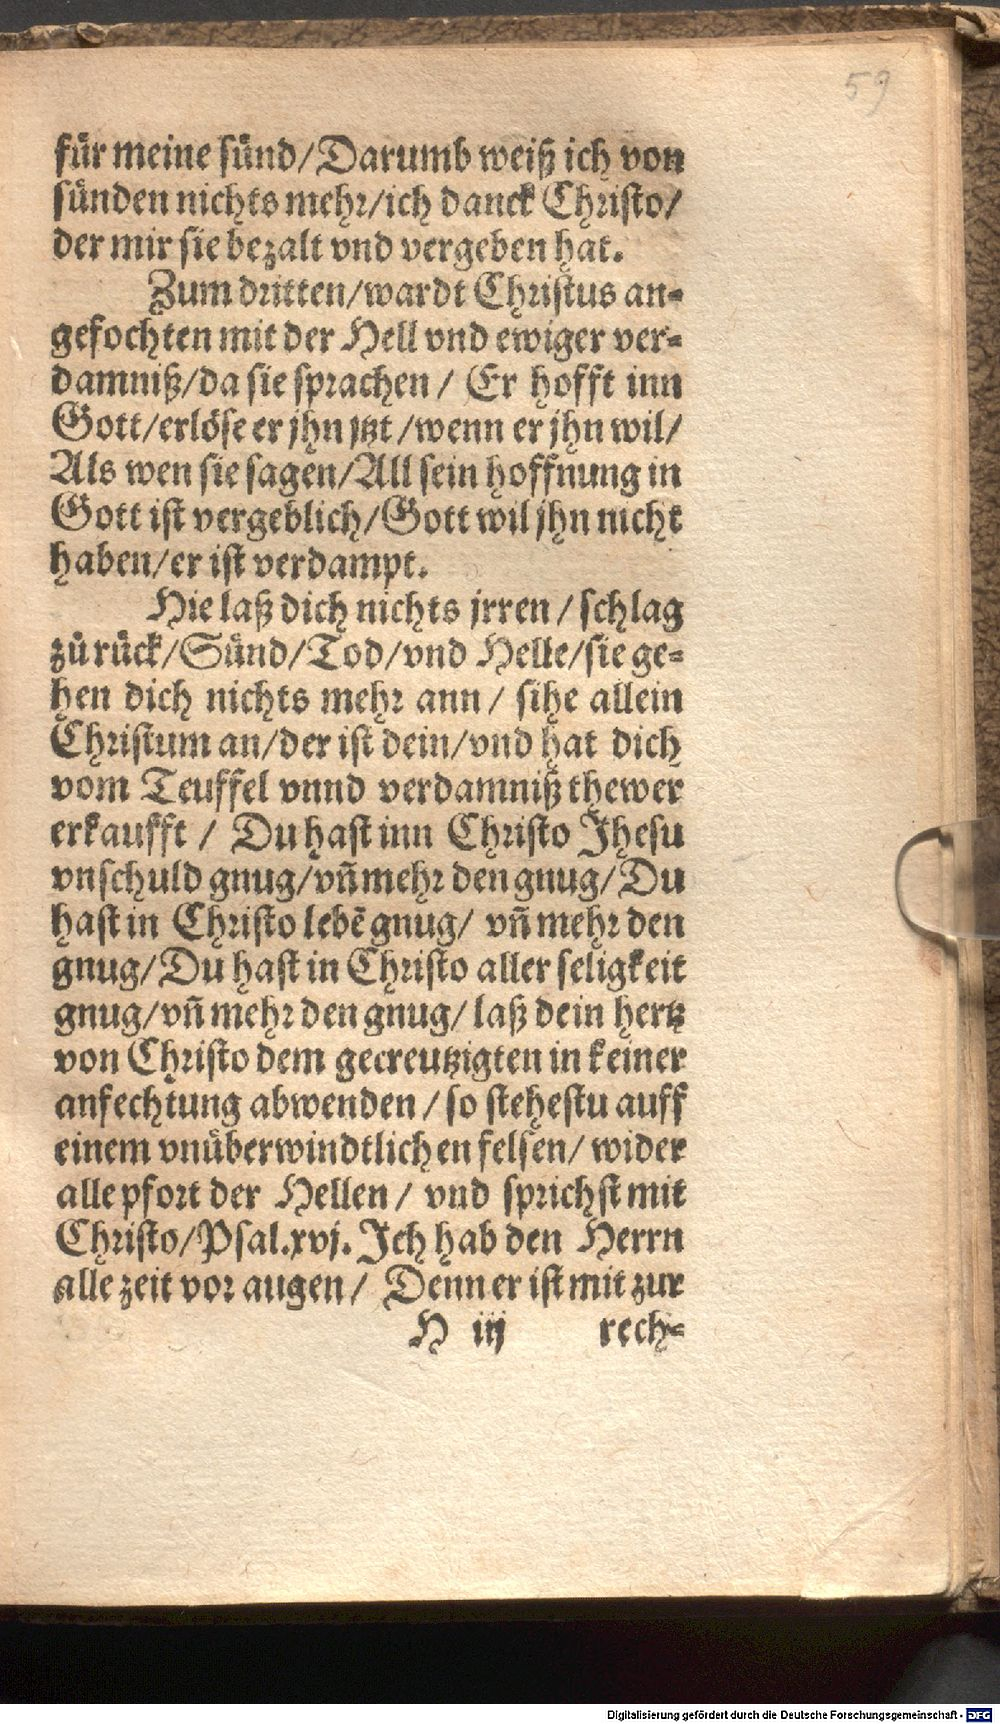 59
für meine sünd/Darumb weiß ich von
sünden nichts mehr/ich danck Christo/
der mir sie bezalt vnd vergeben hat.
Zum dritten/wardt Christus an-
gefochten mit der Hell vnd ewiger ver-
damniß/da sie sprachen / Er hofft inn
Gott/erlöse er jhn jtzt /wenn er jhn wil/
Als wen sie sagen/All sein hoffnung in
Gott ist vergeblich/Gott wil jhn nicht
haben/er ist verdampt.
Hie laß dich nichts jrren / schlag
zů rück/Sünd/Tod/vnd Helle/sie ge-
hen dich nichts mehr ann / sihe allein
Christum an/der ist dein/vnd hat dich
vom Teuffel vnnd verdamniß thewer
erkaufft / Du hast inn Christo Jhesu
vnschuld gnug/vn̄ mehr den gnug/Du
hast in Christo lebē gnug/ vn̄ mehr den
gnug/Du hast in Christo aller seligkeit
gnug/vn̄ mehr den gnug/ laß dein hertz
von Christo dem gecreutzigten in keiner
anfechtung abwenden / so stehestu auff
einem vnüberwindtlichen felsen/ wider
alle pfort der Hellen / vnd sprichst mit
Christo/Psal.xvj. Ich hab den Herrn
alle zeit vor augen / Denn er ist mit zur
H iij rech-
Digitalisierung gefördert durch die Deutsche Forschungsgemeinschaft - DFG